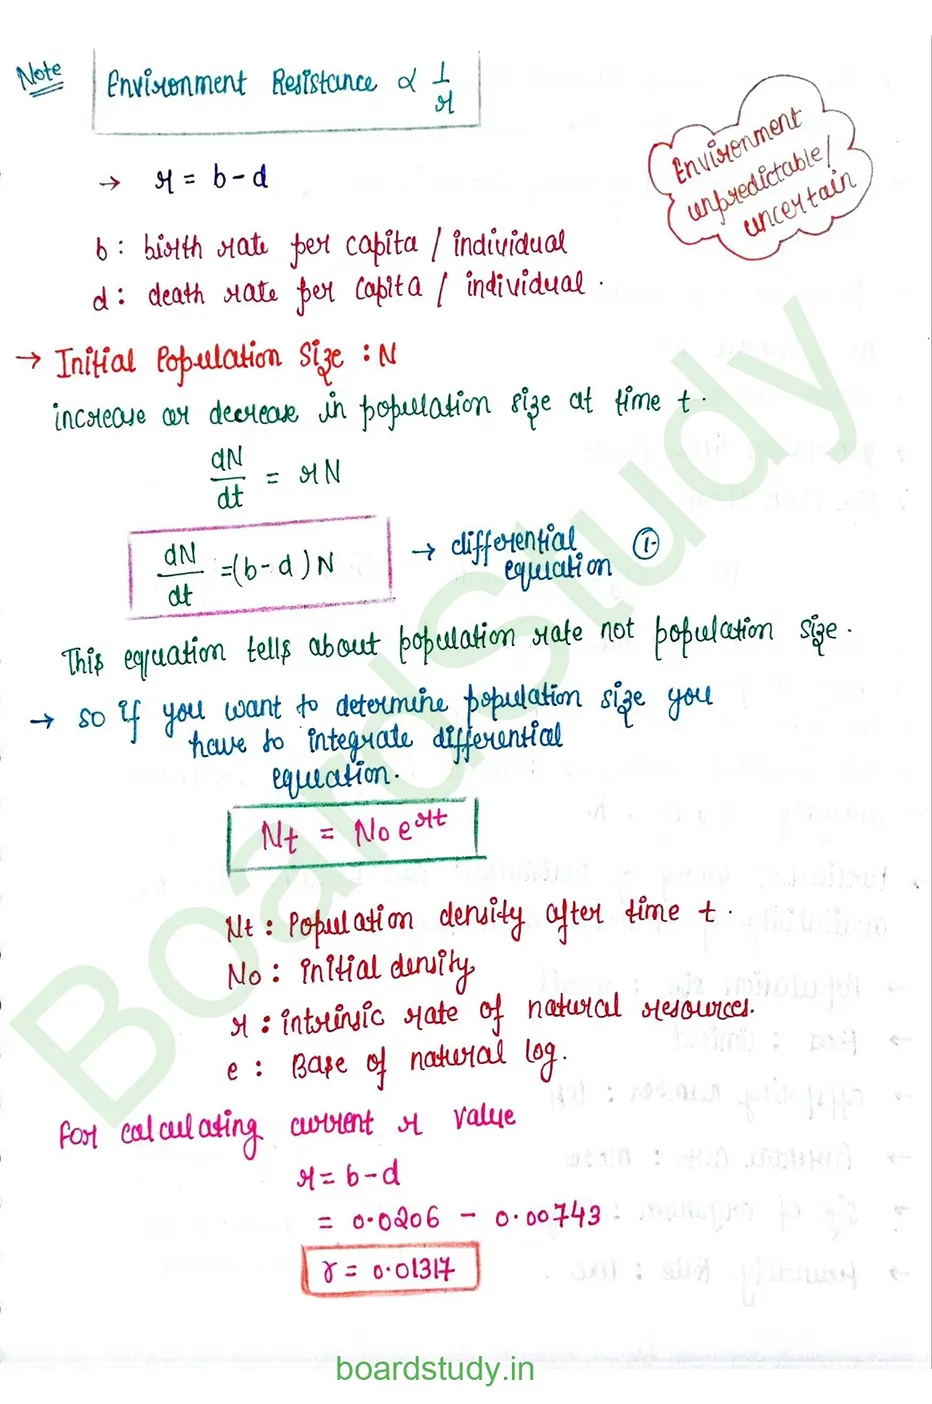 Note
Environment Resistance ∝ 1/r
Environment
unpredictable/
uncertain
→ r = b-d
b : birth rate per capita / individual
d : death rate per capita / individual.
→ Initial Population Size : N
increase or decrease in population size at time t.
dN/dt = rN
dN/dt =(b-d)N → differential equation ①
This equation tells about population rate not population size.
→ so if you want to determine population size you
have to integrate differential
equation.
Nt = No e^rt
Nt : Population density after time t.
No : initial density
r : intrinsic rate of natural resources.
e : Base of natural log.
for calculating current r value
r = b-d
= 0.0206 - 0.00743
r = 0.01317
BoardStudy
boardstudy.in